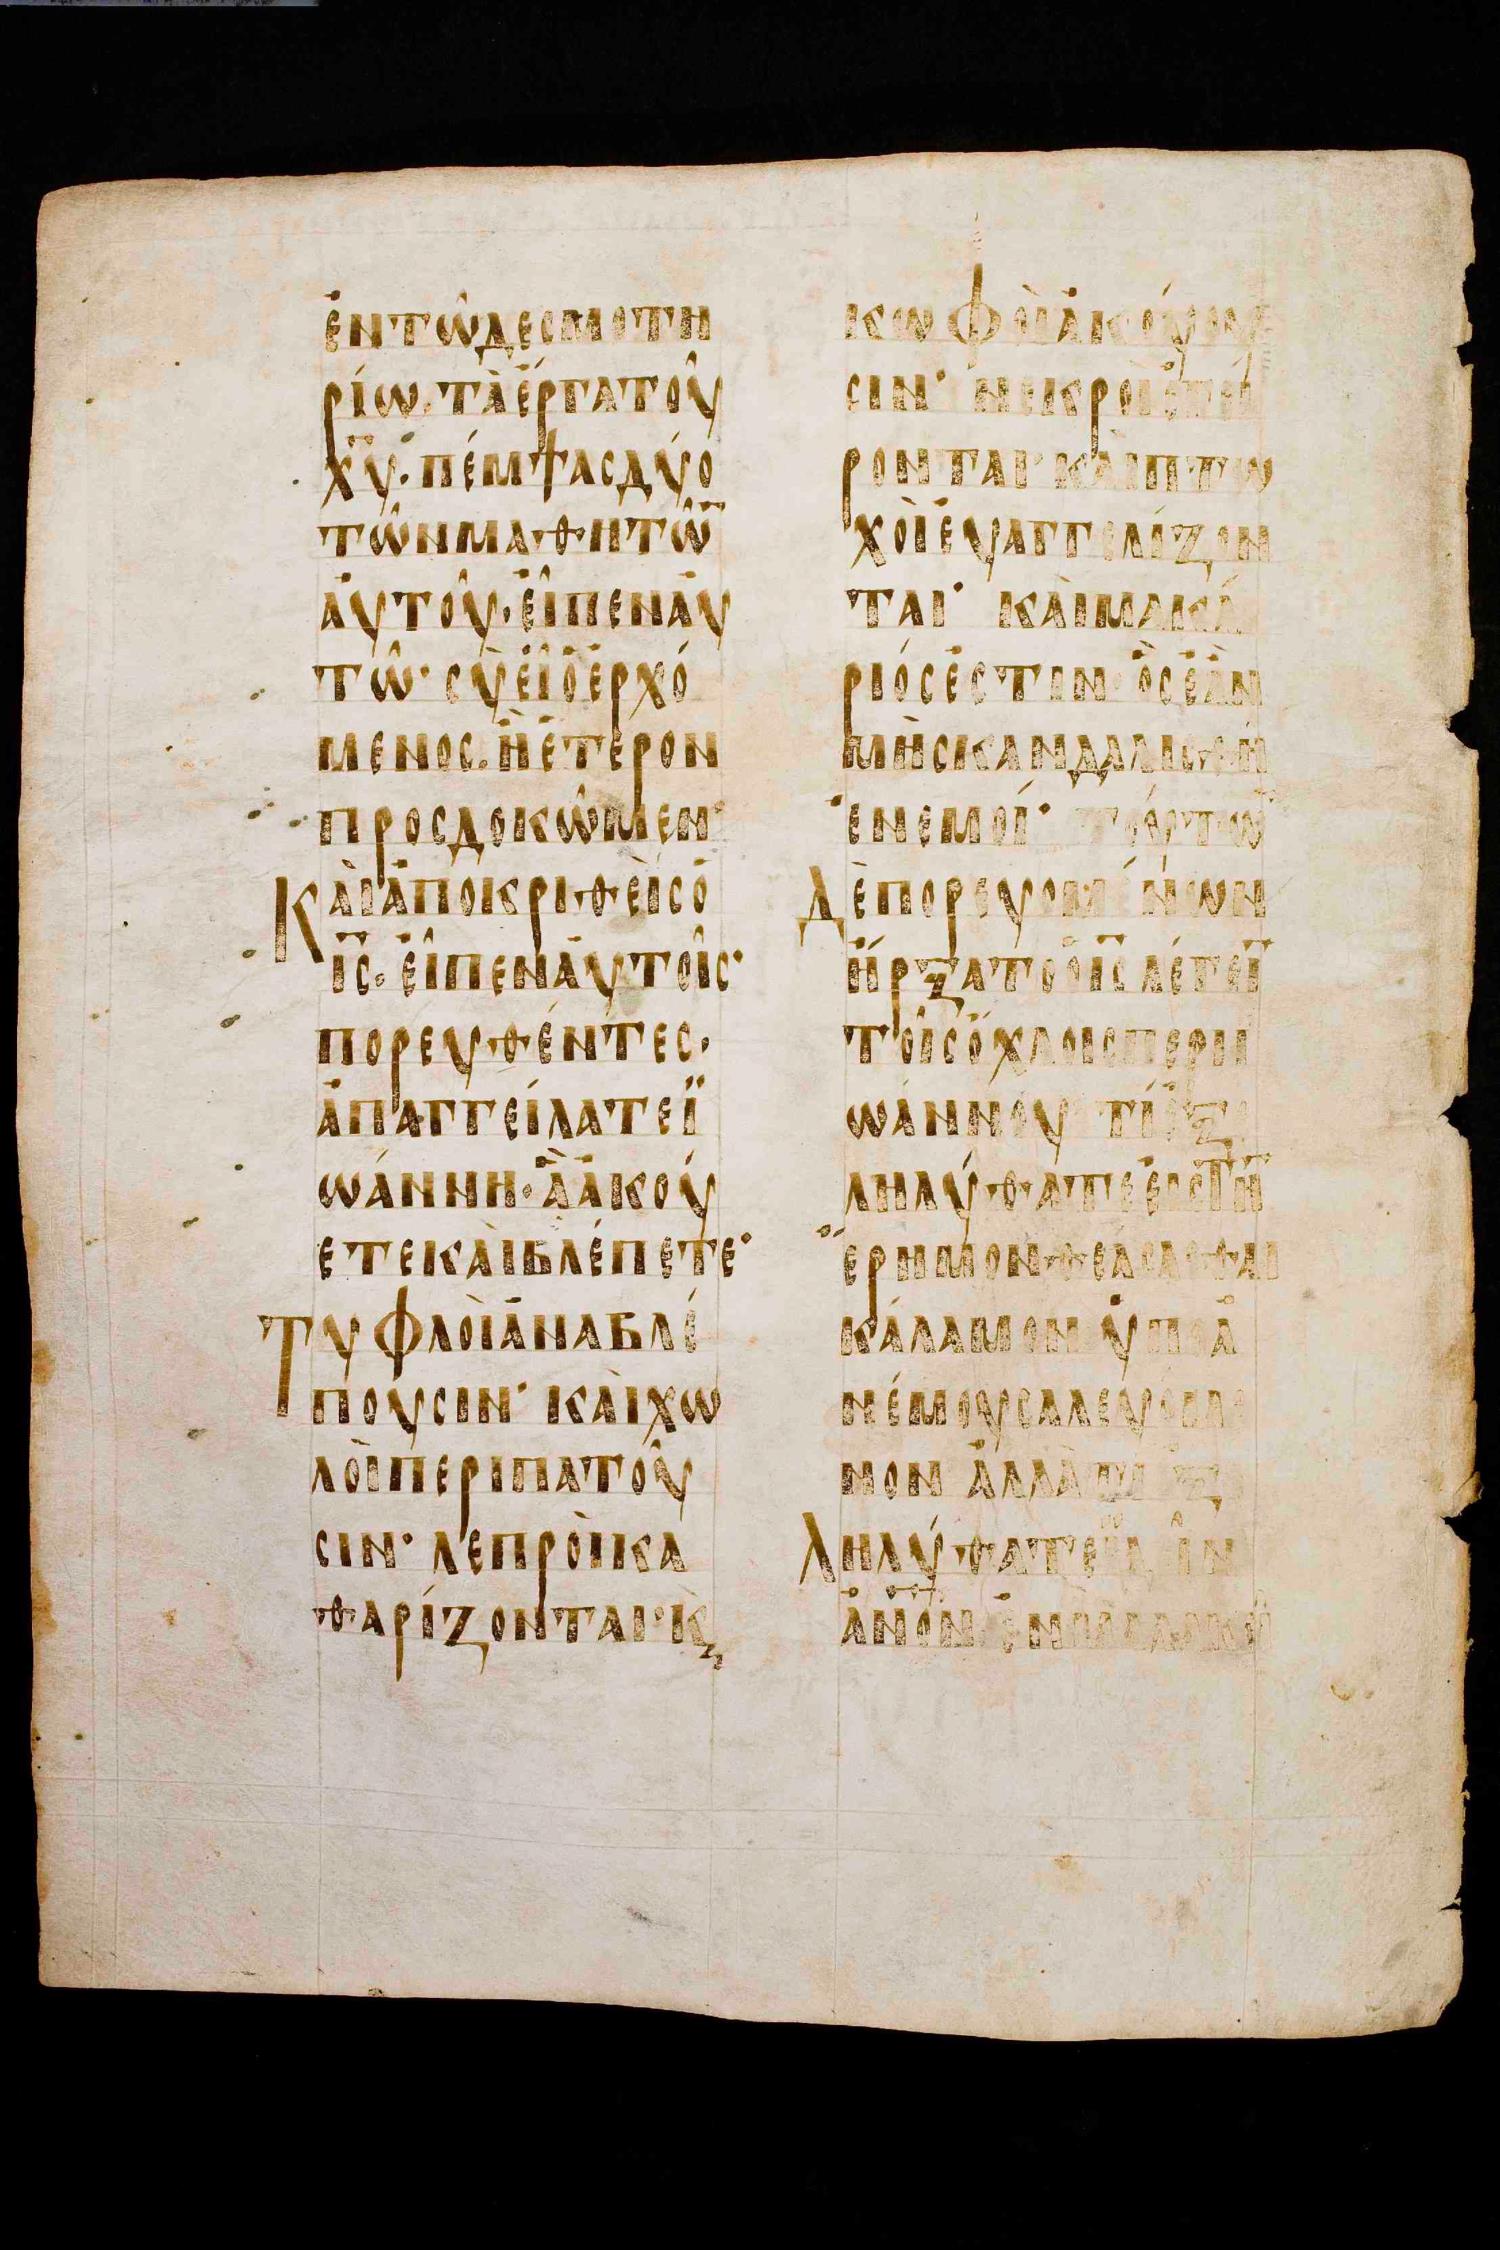 ἐντῶδεσμοτη
ρίω. τὰἔργατοῦ
χ̅υ̅· πέμψασδύο
τῶνμαθητῶ̅
ἀυτοῦ· ἐῖπεναυ
τῶ· σὺἐῖὁἐρχό
μενος. ἢἕτερον
προσδοκῶμεν·
Κὰιἀποκριθεὶσὁ
ι̅ς̅· ἐῖπεναυτοῖς·
πορευθέντες·
ἀπαγγείλατεϊ
ωάννη· ἃἀκού
ετεκὰιβλέπετε·
Τυφλοὶἀναβλέ
πουσιν· κὰιχω
λοὶπεριπατοῦ
σιν· λεπροὶκα
θαρίζονται· κ̀
κωφοὶἀκούου
σιν· νεκροὶἐγεί
ρονται· κὰιπτω
χοὶἐυαγγελίζον
ται· κὰιμακά
ριόσἐστιν· ὃσἐὰν
μὴσκανδαλισθῆ
ἐνεμοί· τούτω̅
Δὲπορευομένων
ἤρξατοὁι̅ς̅λέγει̅
τοῖσὄχλοισπερϊ
ωάννου τίἐξ
ληλύθατεἐιστὴ̅
ἔρημονθεάσασθαι
κάλαμον ὑποἀ
νέμουσαλευόμε
νον ἀλλὰτί ἐξ
Ληλύθατεϊδεῖν
ἀ̅ν̅ο̅ν̅ ἐν